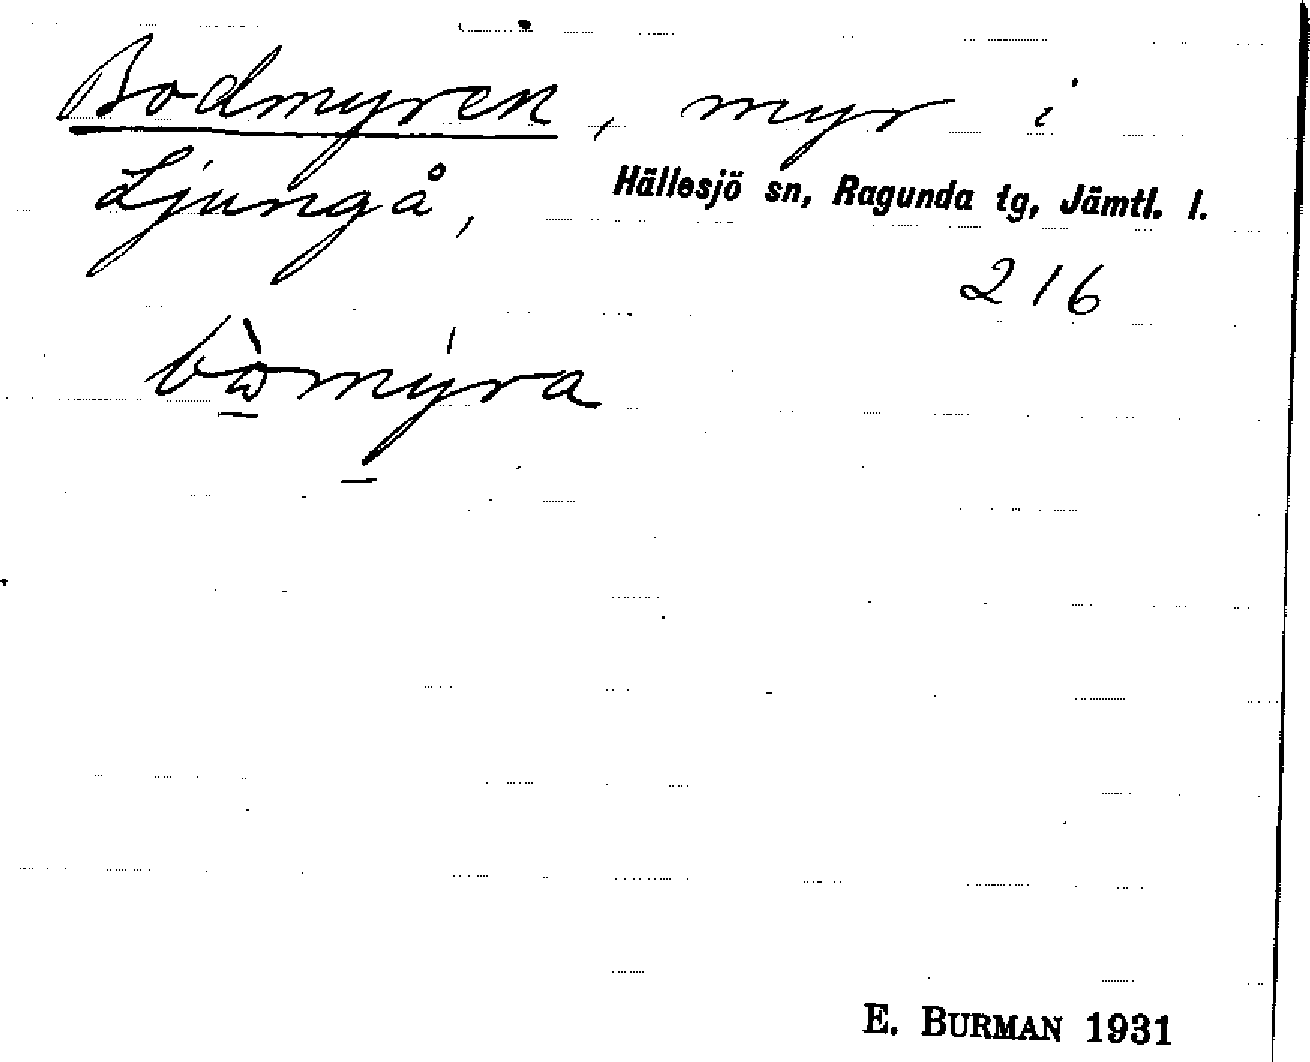 Bodmyren, myr i
Ljungå, Hällesjö sn, Ragunda tg, Jämtl. l.
216
bòmýra
E. BURMAN 1931